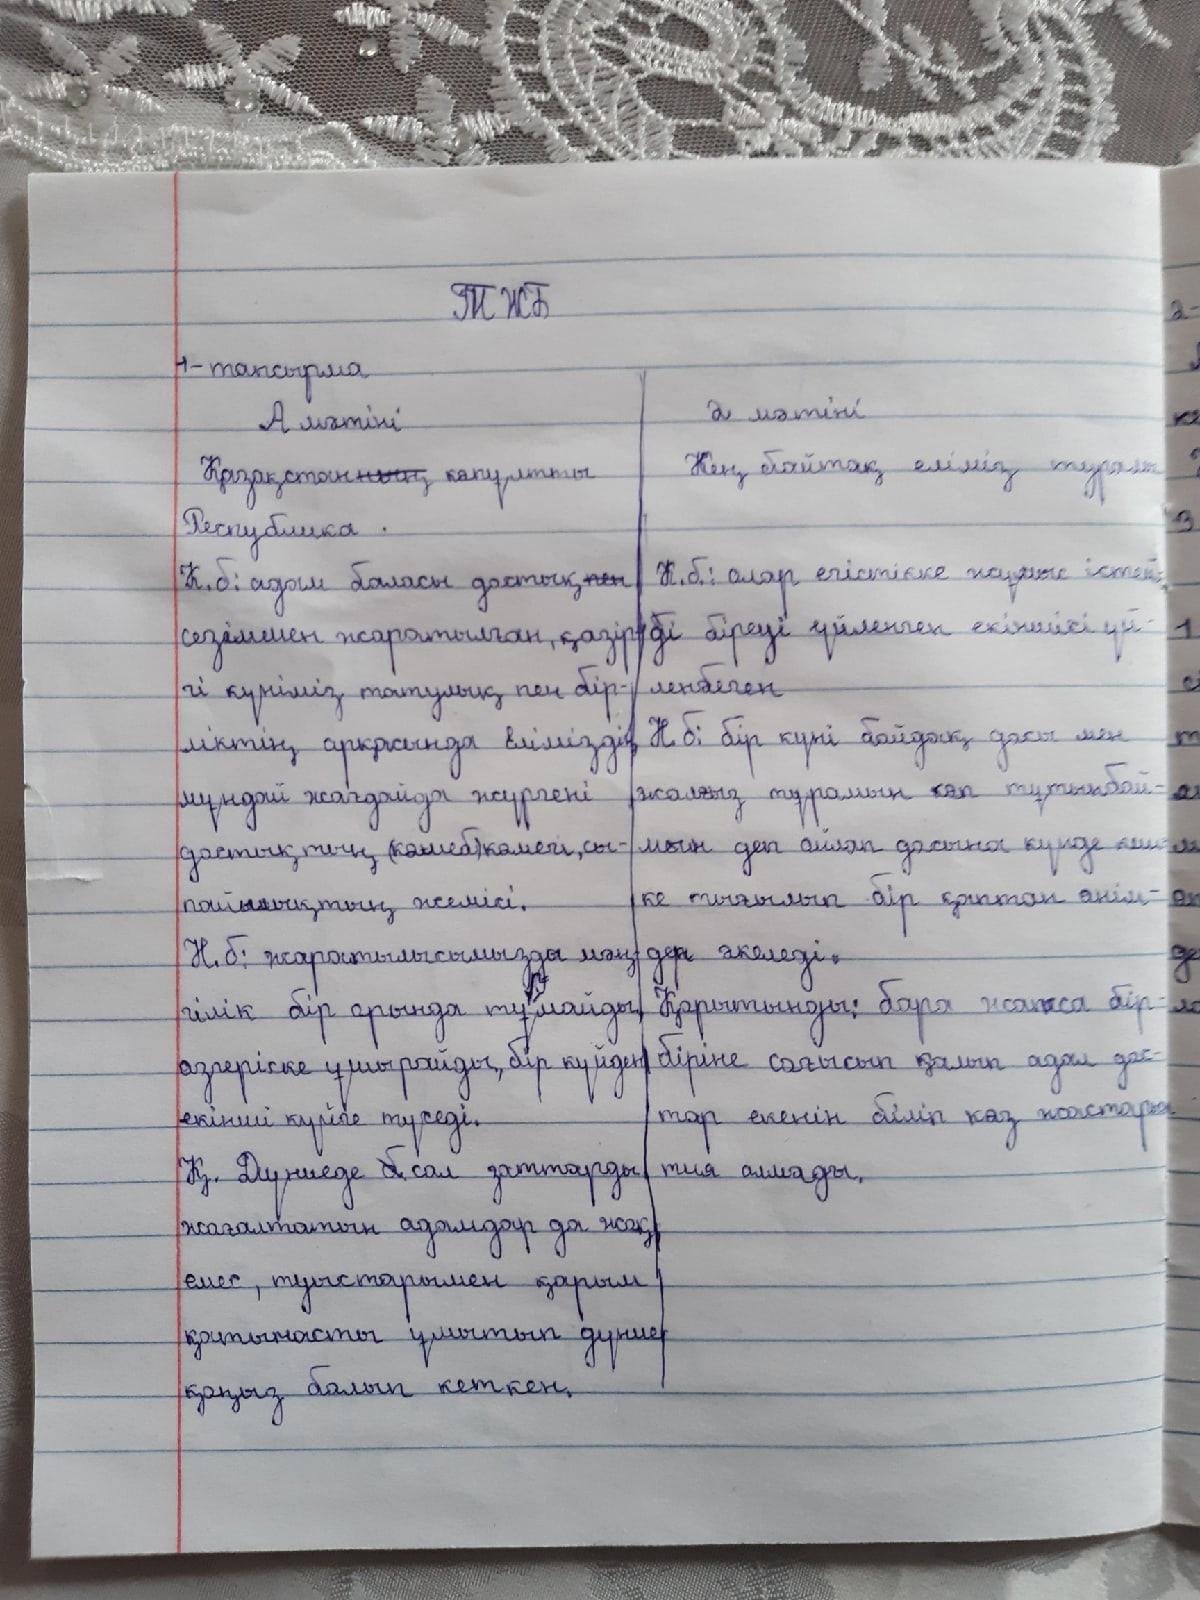 ТЖБ
1-тапсырма
А мәтіні
Қазақстан көпұлтты
Республика.
К.б: адам баласы достық
сезіммен жаратылған, қазір
гі күніміз татулық пен бір-
ліктің арқасында еліміздің
мұндай жағдайда жүргені
достықтың көмегі, сы-
пайылықтың жемісі.
Н.б: жаратылысымызды мәң
гілік бір орында тұрмайды
өзгеріске ұшырайды, бір күйден
екінші күйге түседі.
Қ. Дүниеде сол заттарды
жоғалтатын адамдар да жоқ
емес, туыстарымен қарым
қатынасты ұмытып дүние
қоңыз болып кеткен.
Ә мәтіні
Кең байтақ еліміз туралы
К.б.: олар егістікке жұмыс істей-
ді біреуі үйленген екіншісі үй-
ленбеген
Н.б: бір күні бойдақ досы мен
жалғыз тұрамын көп тұтынбай-
мын деп ойлап досына күнде кеш
ке тығылып бір қаптан өнім-
дер әкеледі.
Қорытынды: бара жатса бір-
біріне соғысып қалып адал дос-
тар екенін біліп көз жастарын
тия алмады.